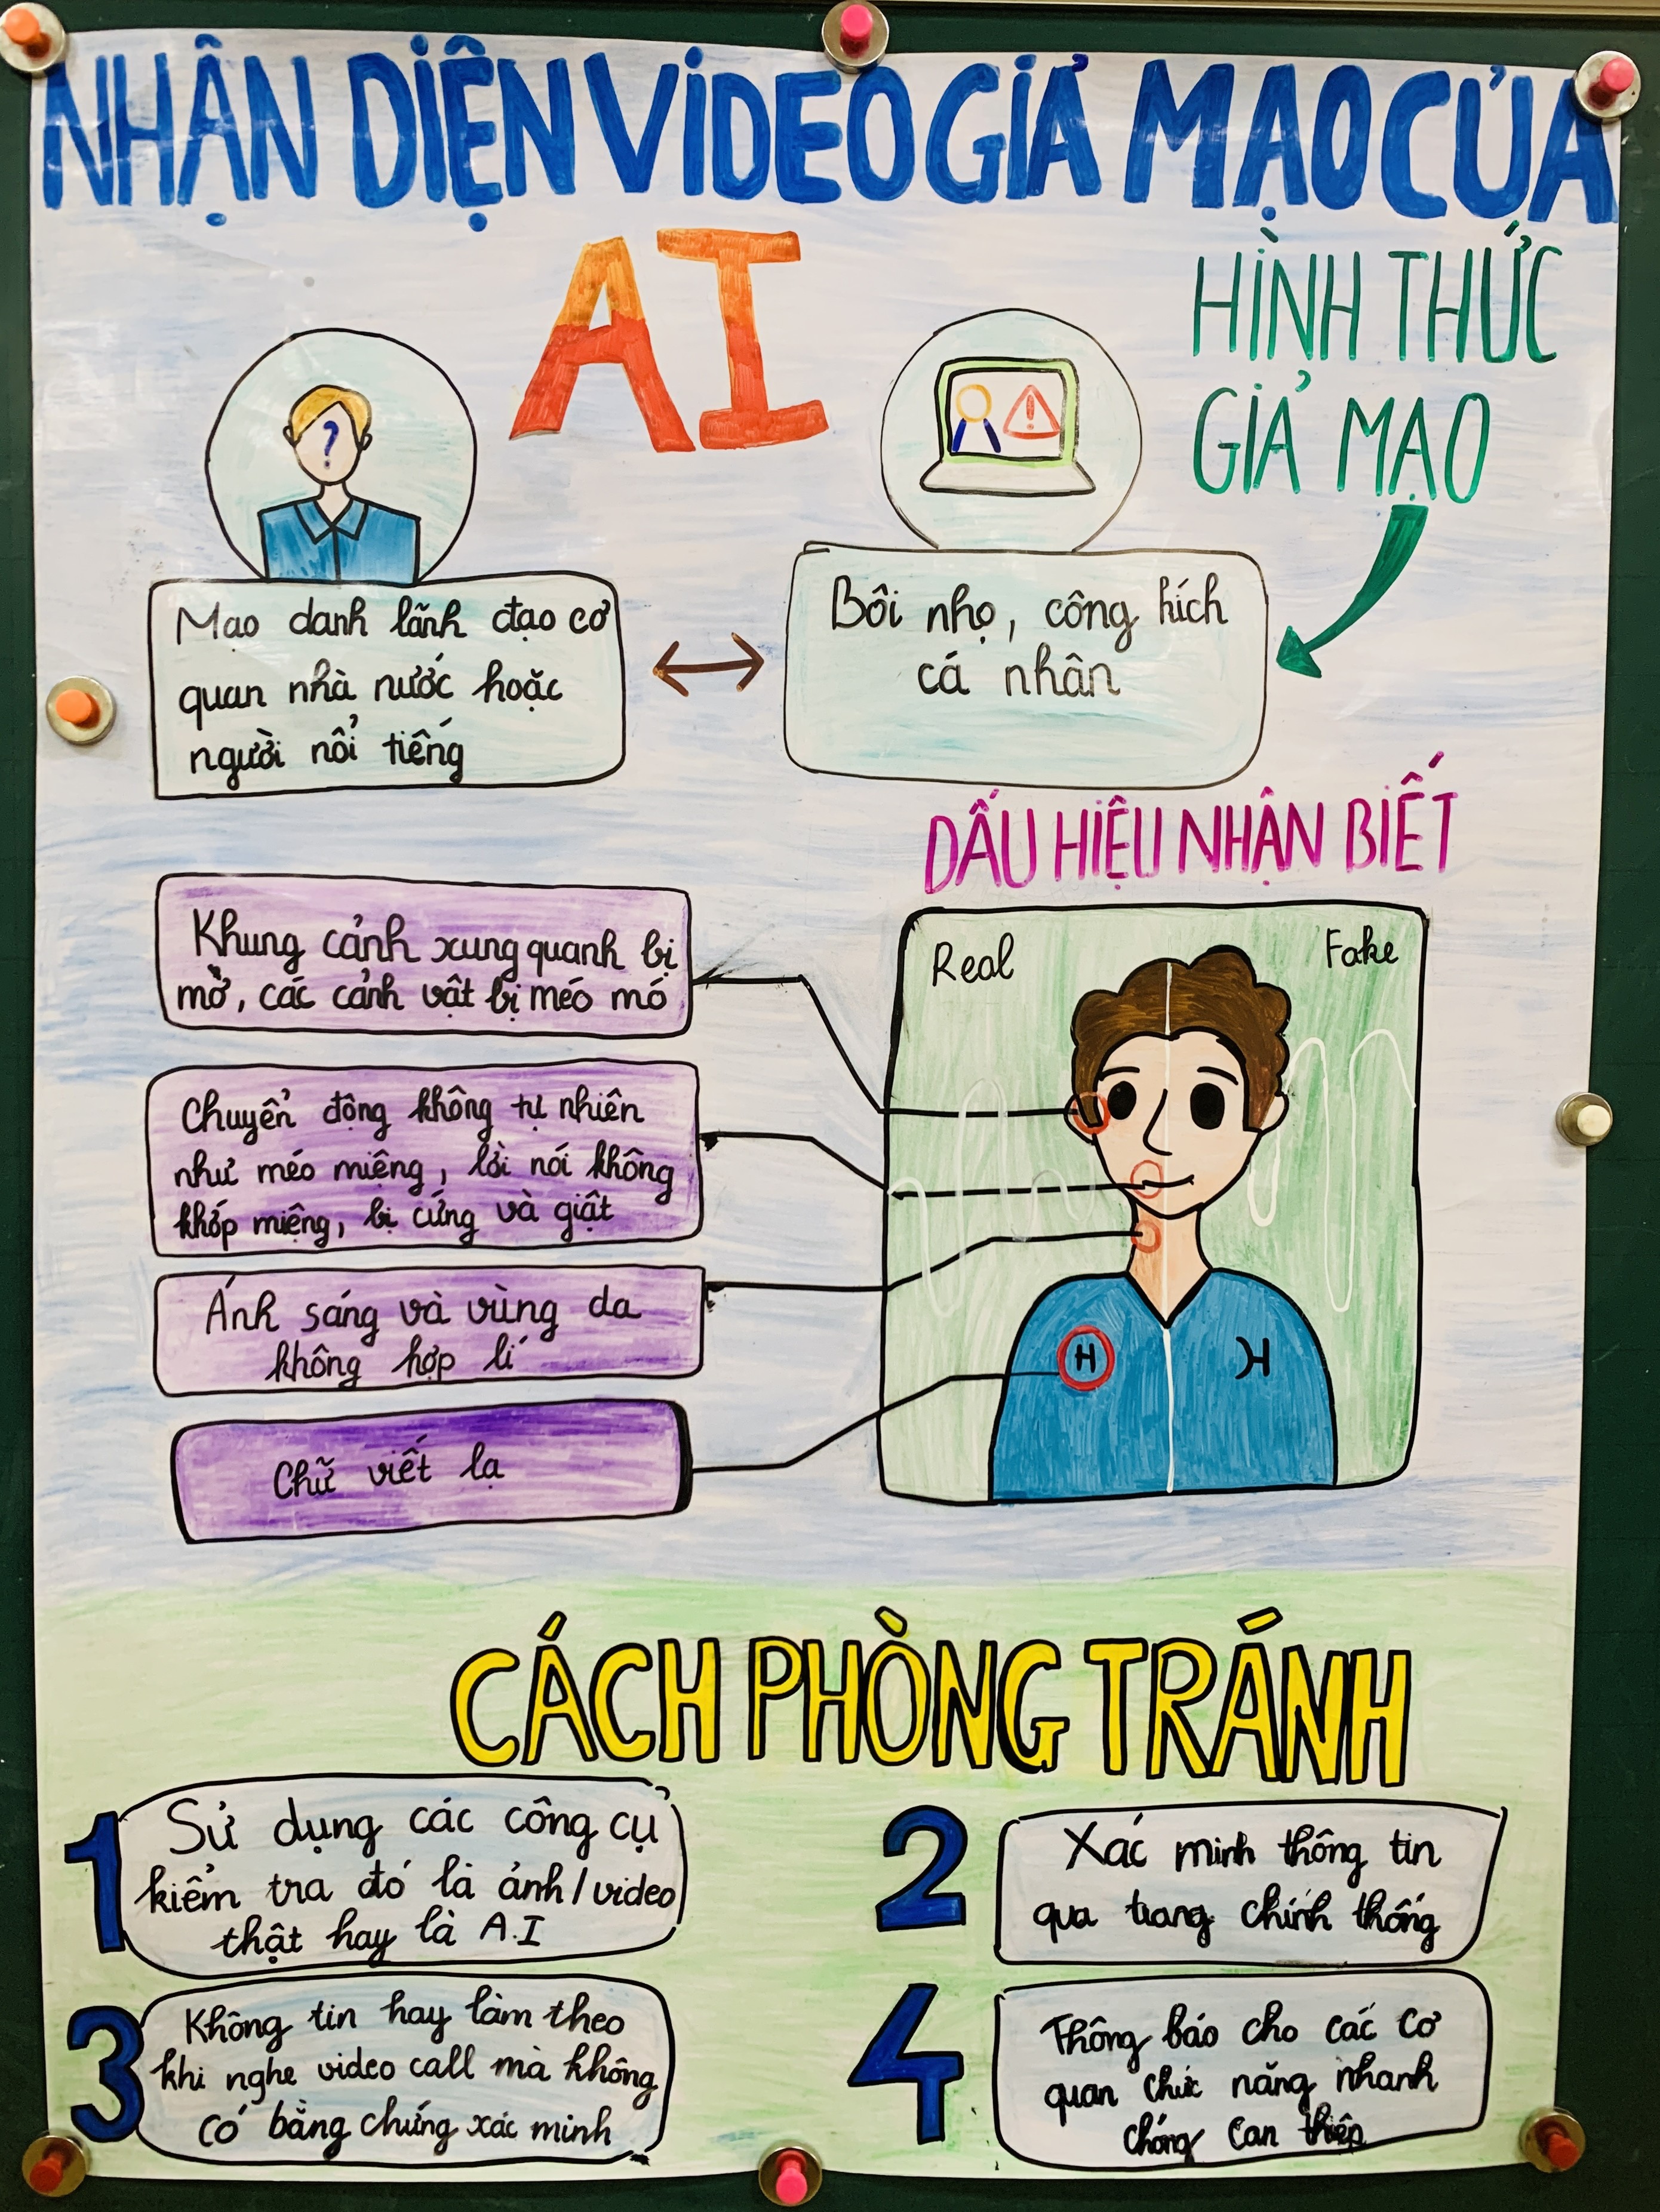 NHẬN DIỆN VIDEO GIẢ MẠO CỦA
AI
HÌNH THỨC
GIẢ MẠO
?
Mạo danh lãnh đạo cơ
quan nhà nước hoặc
người nổi tiếng
!
Bôi nhọ, công kích
cá nhân
DẤU HIỆU NHẬN BIẾT
Khung cảnh xung quanh bị
mờ, các cảnh vật bị méo mó
Chuyển động không tự nhiên
như méo miệng, lời nói không
khớp miệng, bị cứng và giật
Ánh sáng và vùng da
không hợp lí
Chữ viết lạ
Real
Fake
H
H
CÁCH PHÒNG TRÁNH
1
Sử dụng các công cụ
kiểm tra đó là ảnh/video
thật hay là A.I
2
Xác minh thông tin
qua trang chính thống
3
Không tin hay làm theo
khi nghe video call mà không
có bằng chứng xác minh
4
Thông báo cho các cơ
quan chức năng nhanh
chóng can thiệp